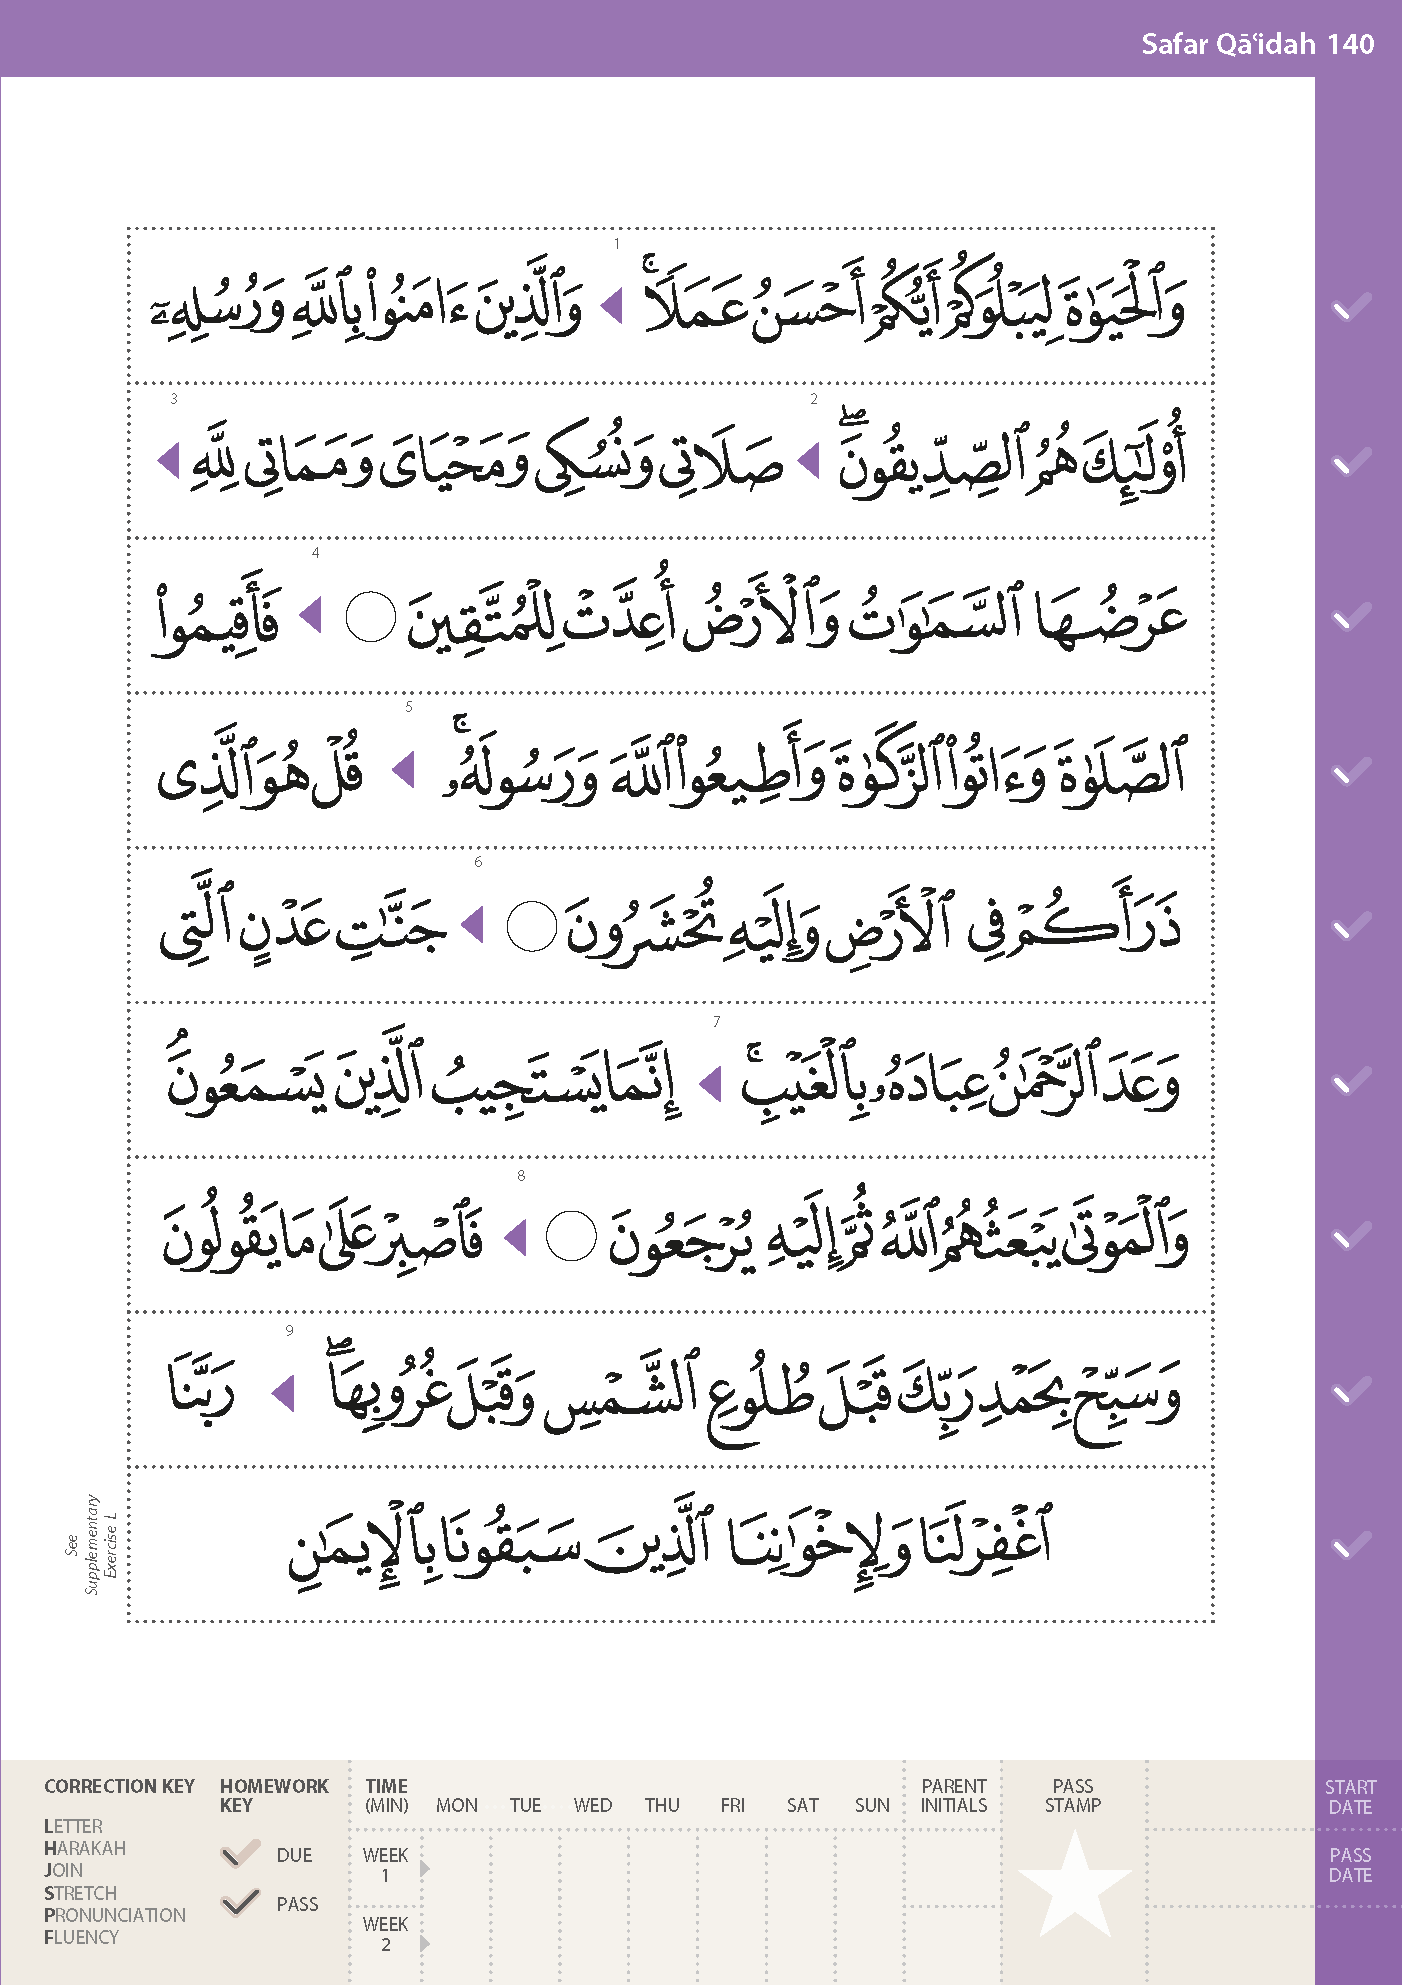 Safar Qāʿidah 140
1
وَٱلْحَيَوٰةَ لِيَبْلُوَكُمْ أَيُّكُمْ أَحْسَنُ عَمَلًاۚ ◀ وَٱلَّذِينَ ءَامَنُوا۟ بِٱللَّهِ وَرُسُلِهِۦٓ
2 3
أُو۟لَـٰٓئِكَ هُمُ ٱلصِّدِّيقُونَۖ ◀ صَلَاتِى وَنُسُكِى وَمَحْيَاىَ وَمَمَاتِى لِلَّهِ ◀
4
عَرْضُهَا ٱلسَّمَـٰوَٰتُ وَٱلْأَرْضُ أُعِدَّتْ لِلْمُتَّقِينَ ◯ ◀ فَأَقِيمُوا۟
5
ٱلصَّلَوٰةَ وَءَاتُوا۟ ٱلزَّكَوٰةَ وَأَطِيعُوا۟ ٱللَّهَ وَرَسُولَهُۥۚ ◀ قُلْ هُوَ ٱلَّذِى
6
ذَرَأَكُمْ فِى ٱلْأَرْضِ وَإِلَيْهِ تُحْشَرُونَ ◯ ◀ جَنَّـٰتِ عَدْنٍ ٱلَّتِى
7
وَعَدَ ٱلرَّحْمَـٰنُ عِبَادَهُۥ بِٱلْغَيْبِۚ ◀ إِنَّمَا يَسْتَجِيبُ ٱلَّذِينَ يَسْمَعُونَۘ
8
وَٱلْمَوْتَىٰ يَبْعَثُهُمُ ٱللَّهُ ثُمَّ إِلَيْهِ يُرْجَعُونَ ◯ ◀ فَٱصْبِرْ عَلَىٰ مَا يَقُولُونَ
9
وَسَبِّحْ بِحَمْدِ رَبِّكَ قَبْلَ طُلُوعِ ٱلشَّمْسِ وَقَبْلَ غُرُوبِهَاۖ ◀ رَبَّنَا
ٱغْفِرْ لَنَا وَلِإِخْوَٰنِنَا ٱلَّذِينَ سَبَقُونَا بِٱلْإِيمَـٰنِ
See
Supplementary
Exercise L
CORRECTION KEY
LETTER
HARAKAH
JOIN
STRETCH
PRONUNCIATION
FLUENCY
HOMEWORK
KEY
DUE
PASS
TIME
(MIN) MON TUE WED THU FRI SAT SUN
WEEK
1
WEEK
2
PARENT
INITIALS
PASS
STAMP
START
DATE
PASS
DATE